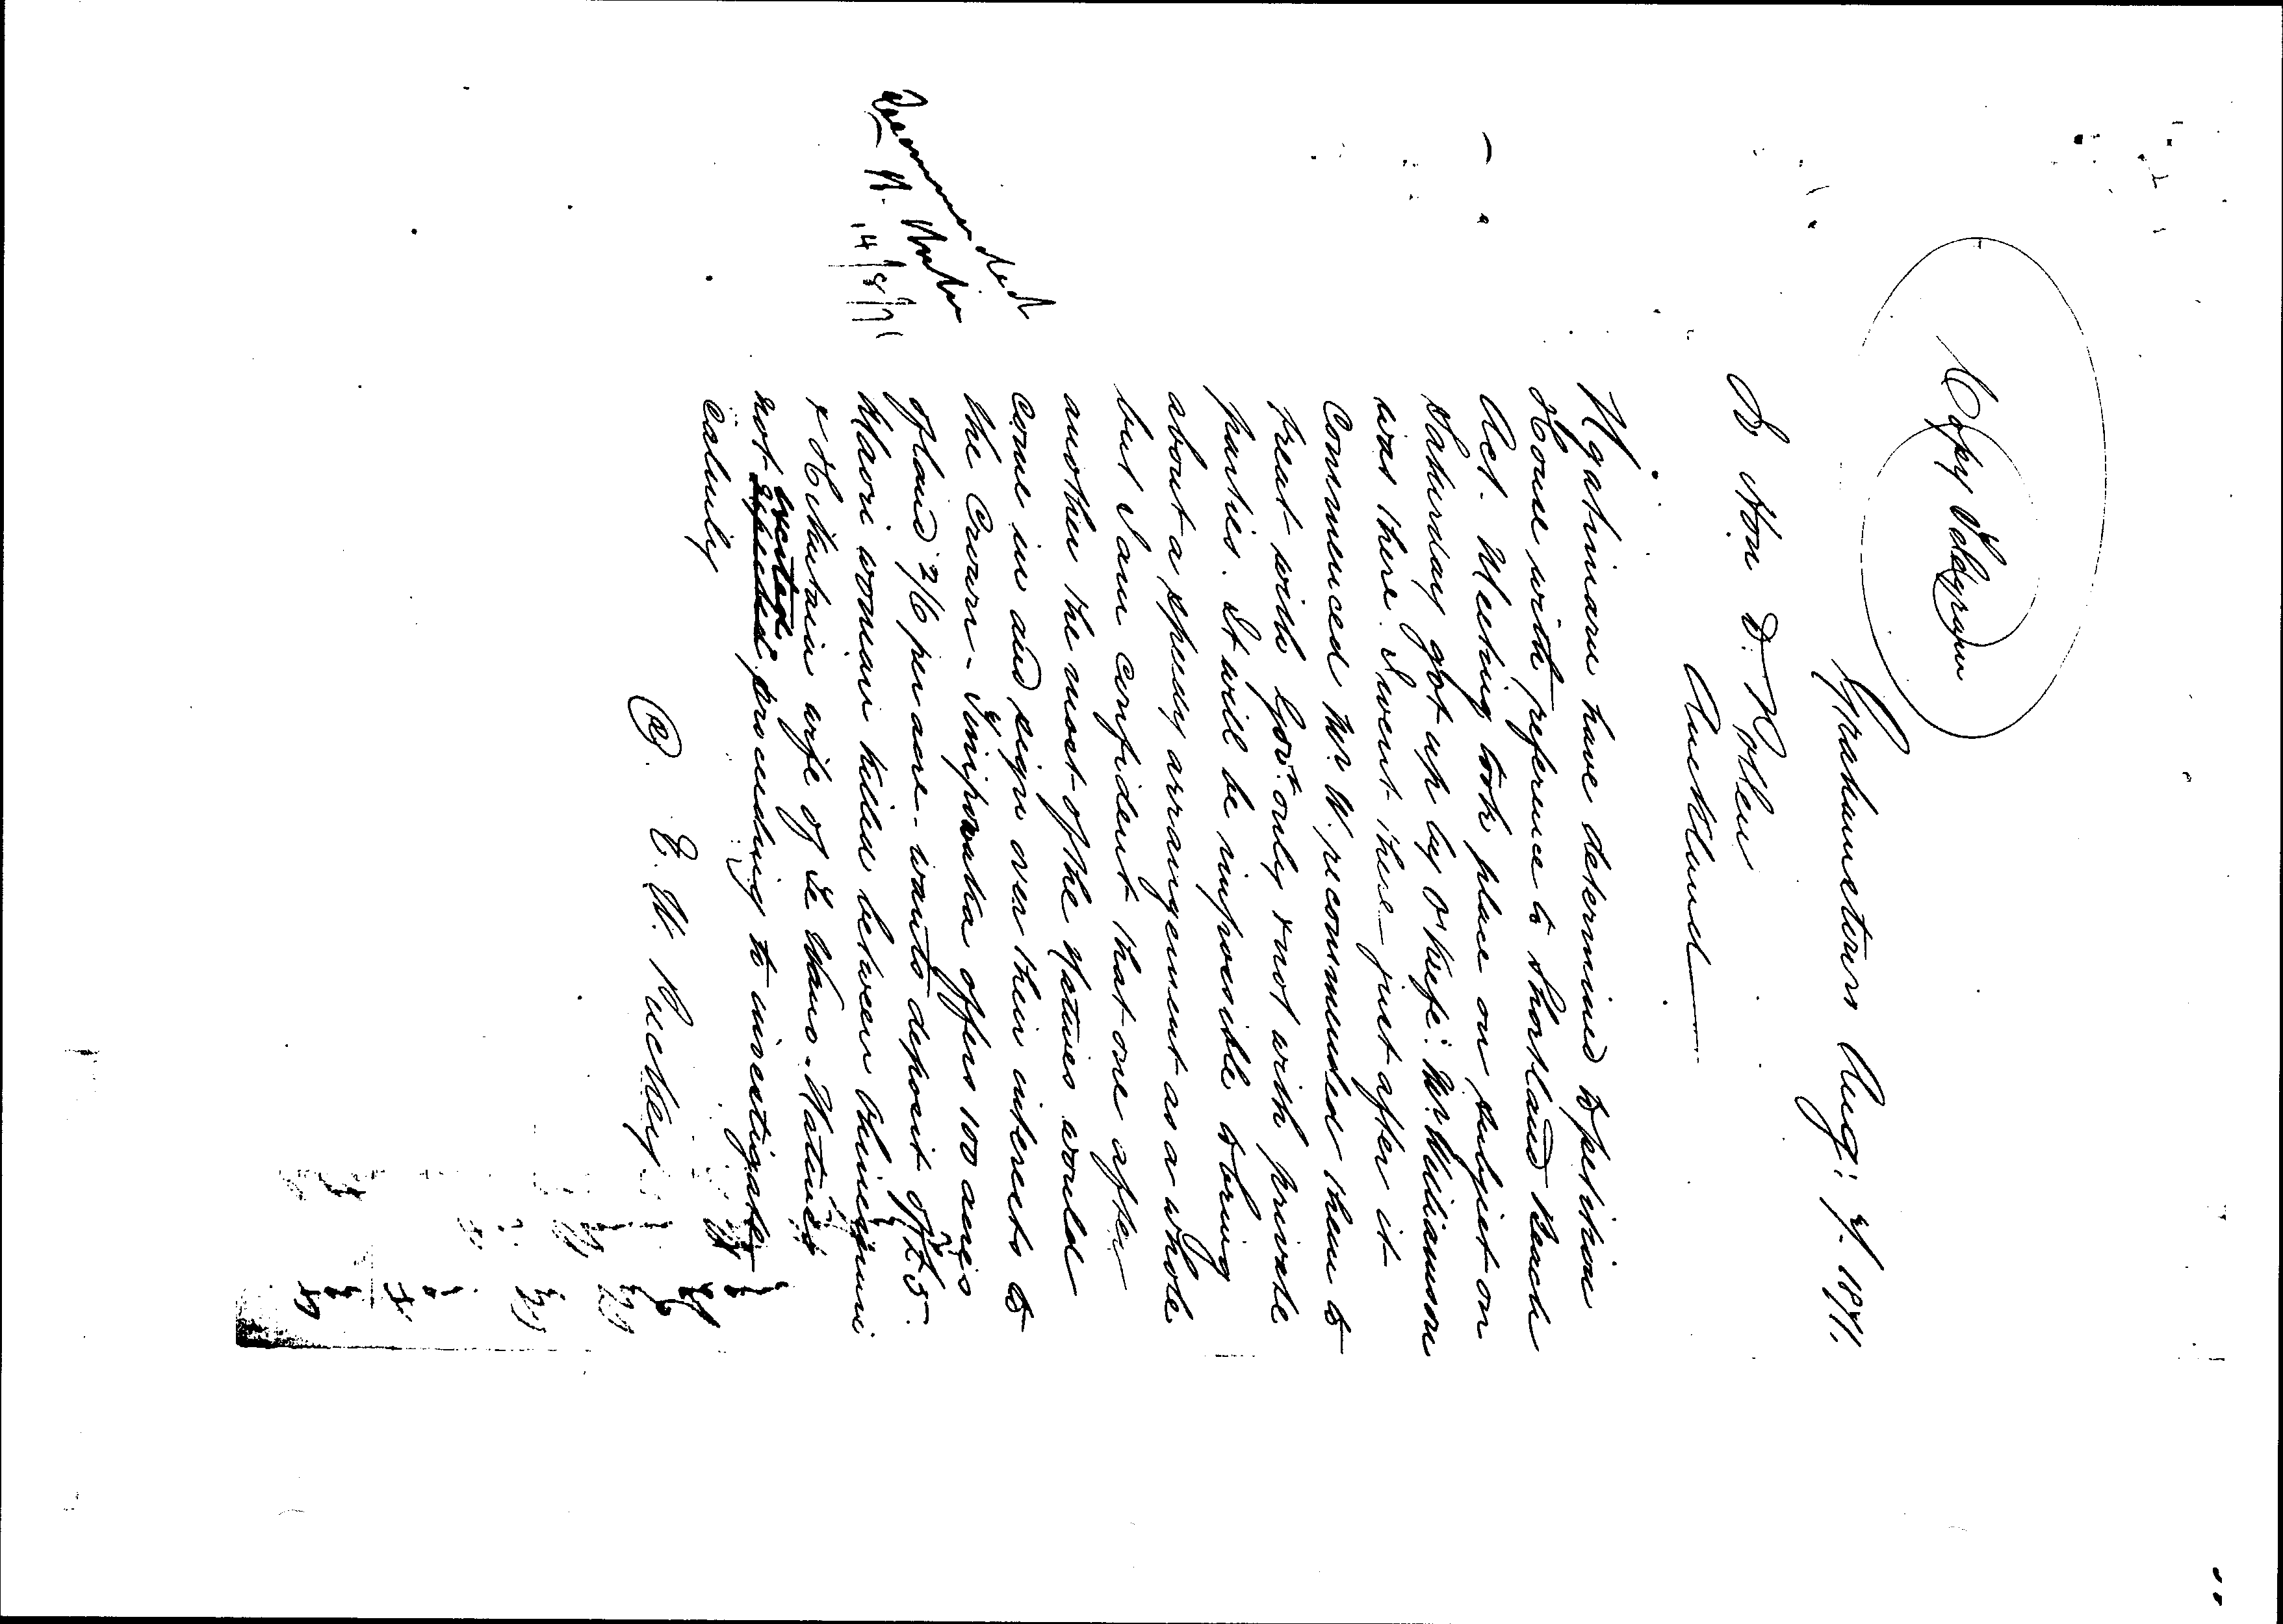 Copy Telegram
Grahamstown Aug: 7. 1871.
To Hon D. Pollen
Auckland
Ngatimaru have determined to petition
House with reference to Shortland Beach
Act. Meeting took place on subject on
Saturday got up by O'Keefe: Mr Williamson
was there. I went there just after it
Commenced Mr W. recommended them to
treat with Govt. only & not with private
parties. It will be impossible to bring
about a speedy arrangement as a whole
but I am confident that one after
another the most of the Natives would
come in and sign over their interests to
the Crown - offers 100 acres
of land 2/6 per acre - wants deposit of £5.
Maori woman killed between Ohinemuri
& Hikutaia wife of Te Hauo. Natives
not excited proceeding to investigate
calmly
E. W. Puckey
14/8/71